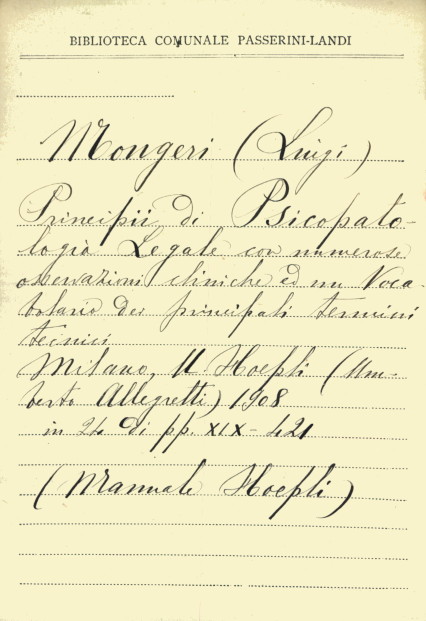 BIBLIOTECA COMUNALE PASSERINI-LANDI
Mongeri (Luigi)
Principii di Psicopato-
logia Legale con numerose
osservazioni cliniche ed un Voca-
bolario dei principali termini
tecnici
Milano, U Hoepli (Um-
berto Allegretti) 1908
in 24 di pp. XIX-421
(Manuale Hoepli)